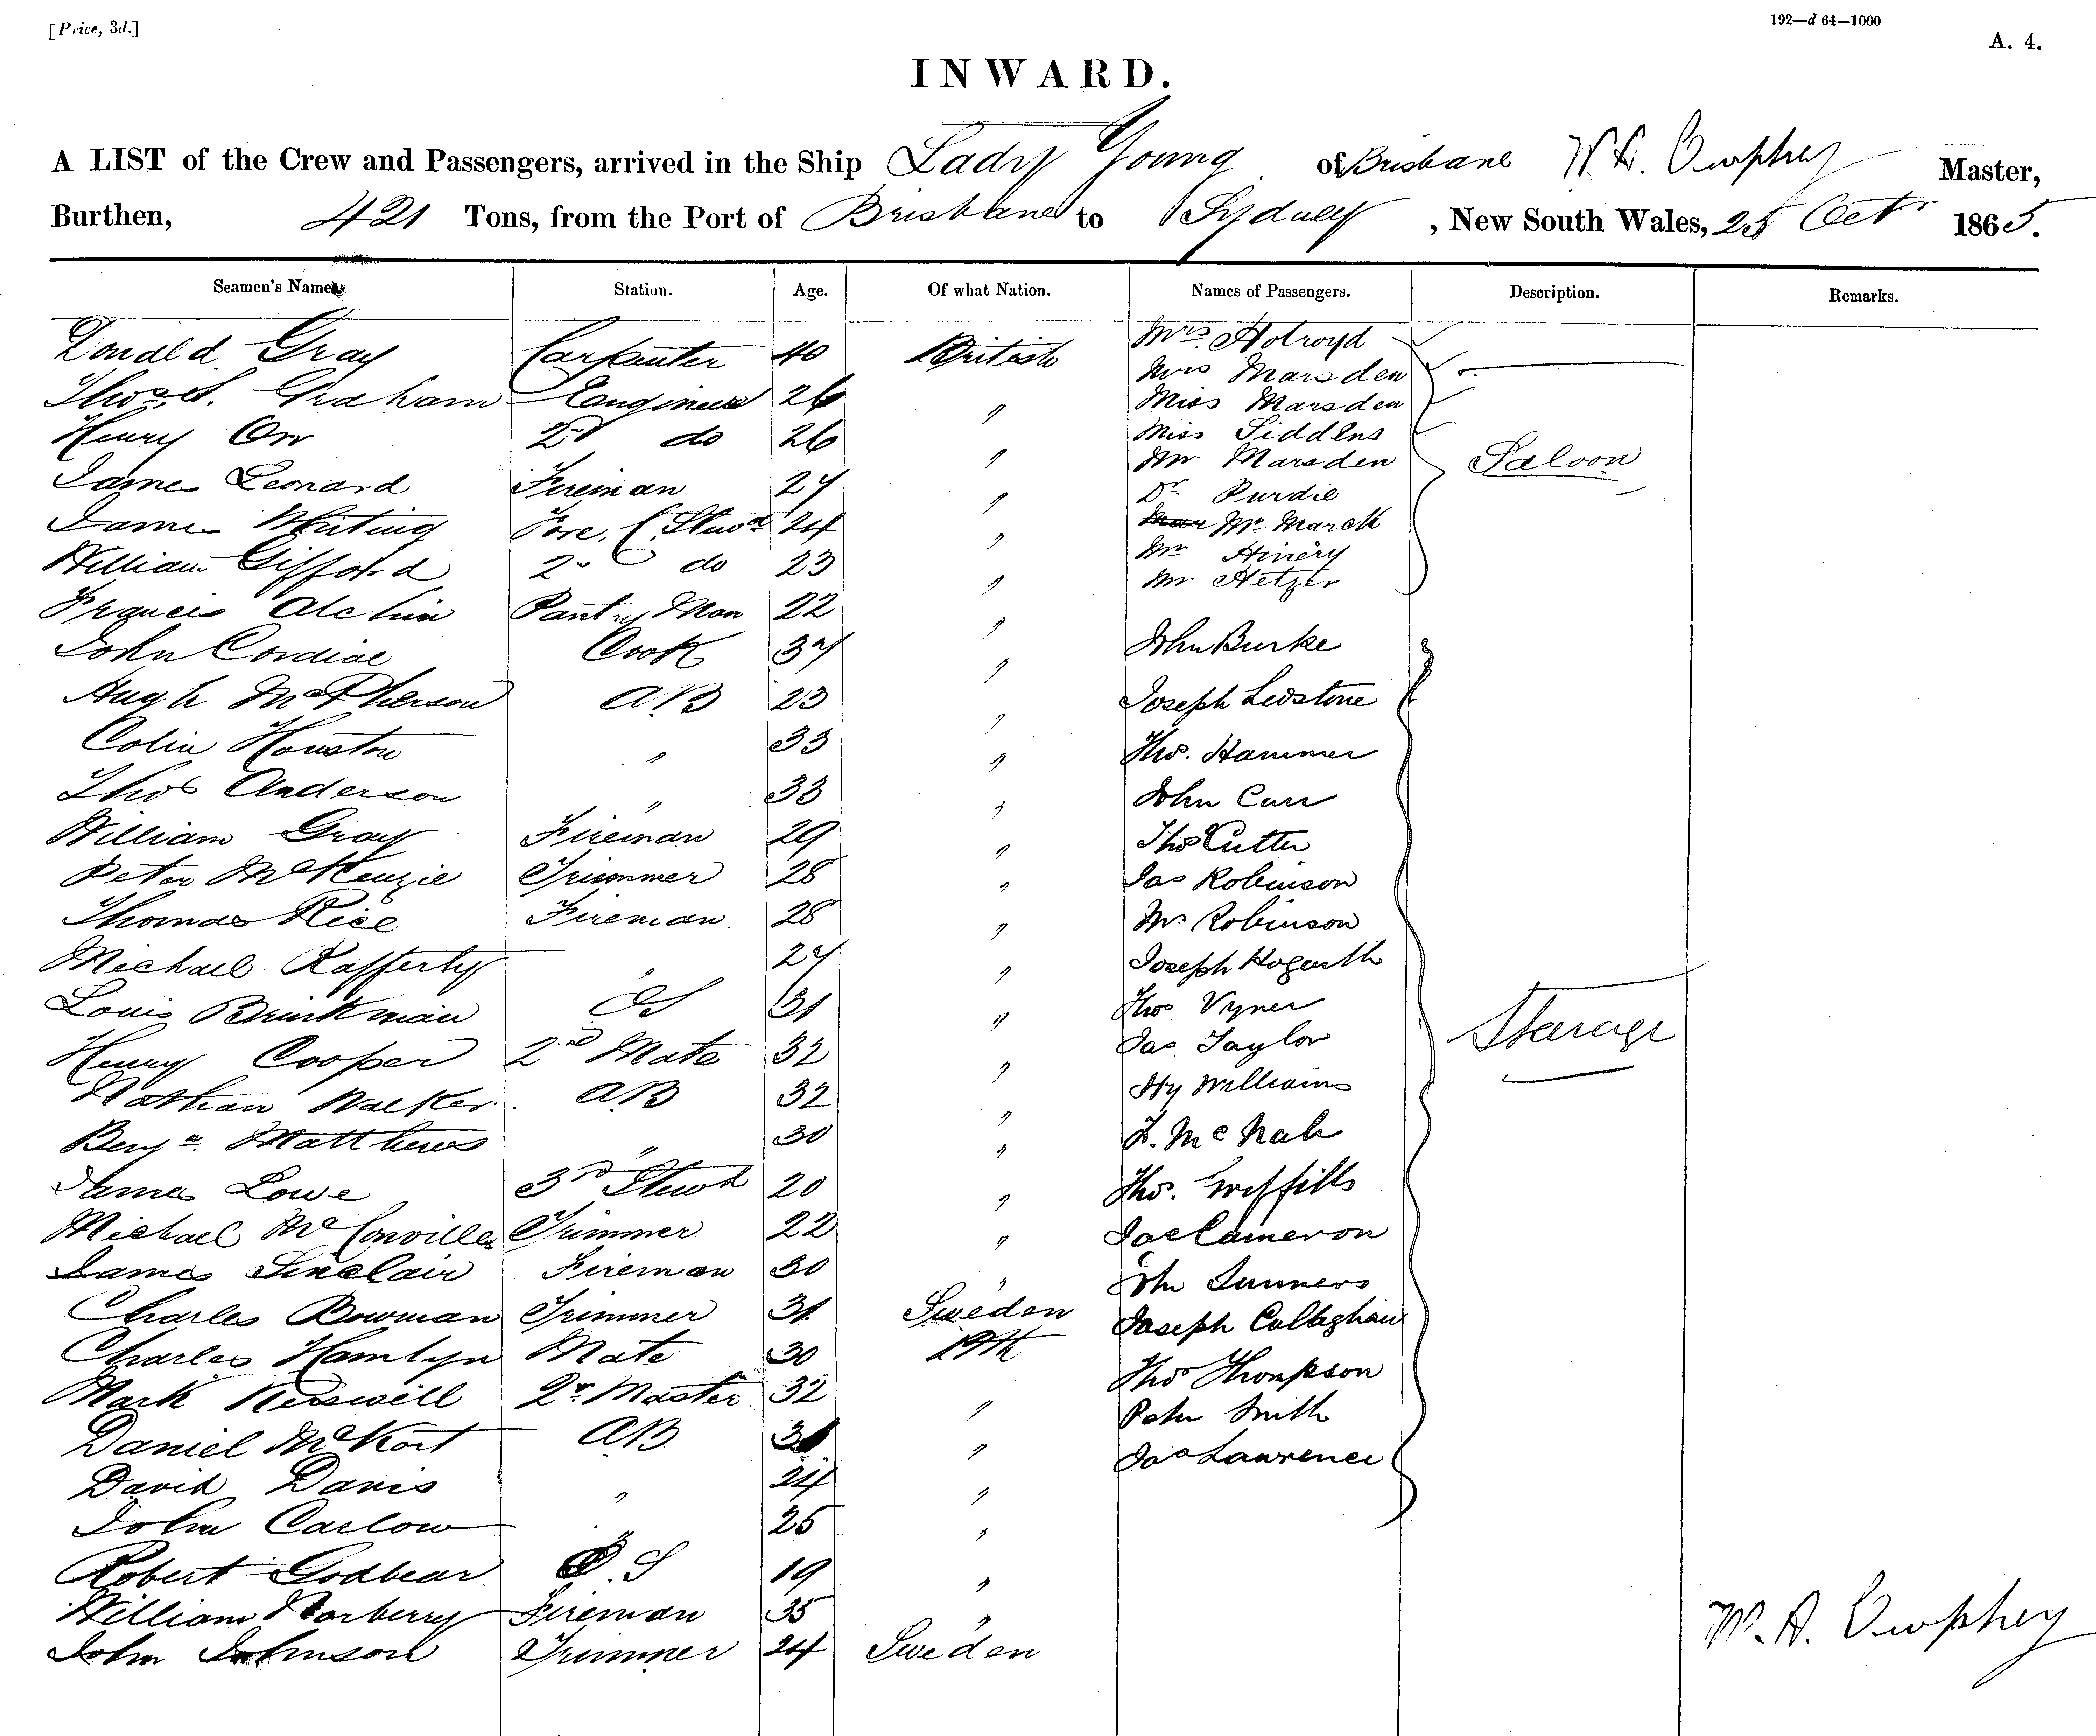 [Price, 3d.]
192—d 64—1000
A. 4.
INWARD.
A LIST of the Crew and Passengers, arrived in the Ship Lady Young of Brisbane Master,
Burthen, 421 Tons, from the Port of Brisbane to Sydney, New South Wales, 25 Oct 1865.
Seamen's Names Station. Age. Of what Nation. Names of Passengers. Description. Remarks.
Donald Gray Carpenter 40 British Mrs Holroyd
Thos. S. Graham Engineer 26 " Mrs Marsden
Miss Marsden
Henry Orr 2d do 26 " Miss Siddens
Mr Marsden Saloon
James Leonard Fireman 27 " Dr Purdie
James Whiting Fore C. Stewd 24 " Mr March
William Gifford 2 do 23 " Mr Hinery
Mr Hetzer
Francis Alchin Pantry Man 22 "
John Cordial Cook 37 " John Burke
Hugh McPherson AB 23 " Joseph Ledstone
Colin Houston " 33 " Thos. Hammer
Thos Anderson " 33 " John Carr
William Gray Fireman 29 " Thos Cutter
Peter McKenzie Trimmer 28 " Jas Robinson
Thomas Rice Fireman 28 " Mrs Robinson
Michael Rafferty " 27 " Joseph Hogarth
Louis Brinkman OS 31 " Thos Vyner
Henry Cooper 2nd Mate 32 " Jas Taylor Steerage
Nathan Walker AB 32 " Hy Williams
Benjn Matthews " 30 " McNab
James Lowe 3rd Stewd 20 " Thos. Griffiths
Michael McConville Trimmer 22 " Jas Cameron
James Sinclair Fireman 30 " Jno Sunners
Charles Bowman Trimmer 31 Sweden Joseph Callaghan
Charles Hamlyn Mate 30 Thos Thompson
Mark Kerswill Qr. Master 32 " Peter Smith
Daniel McKort AB " Jas Lawrence
David Davis " 24 "
John Carlow " 25 "
Robert Godbear O.S 19 "
William Norberry Fireman 35 "
John Johnson Trimmer 24 Sweden